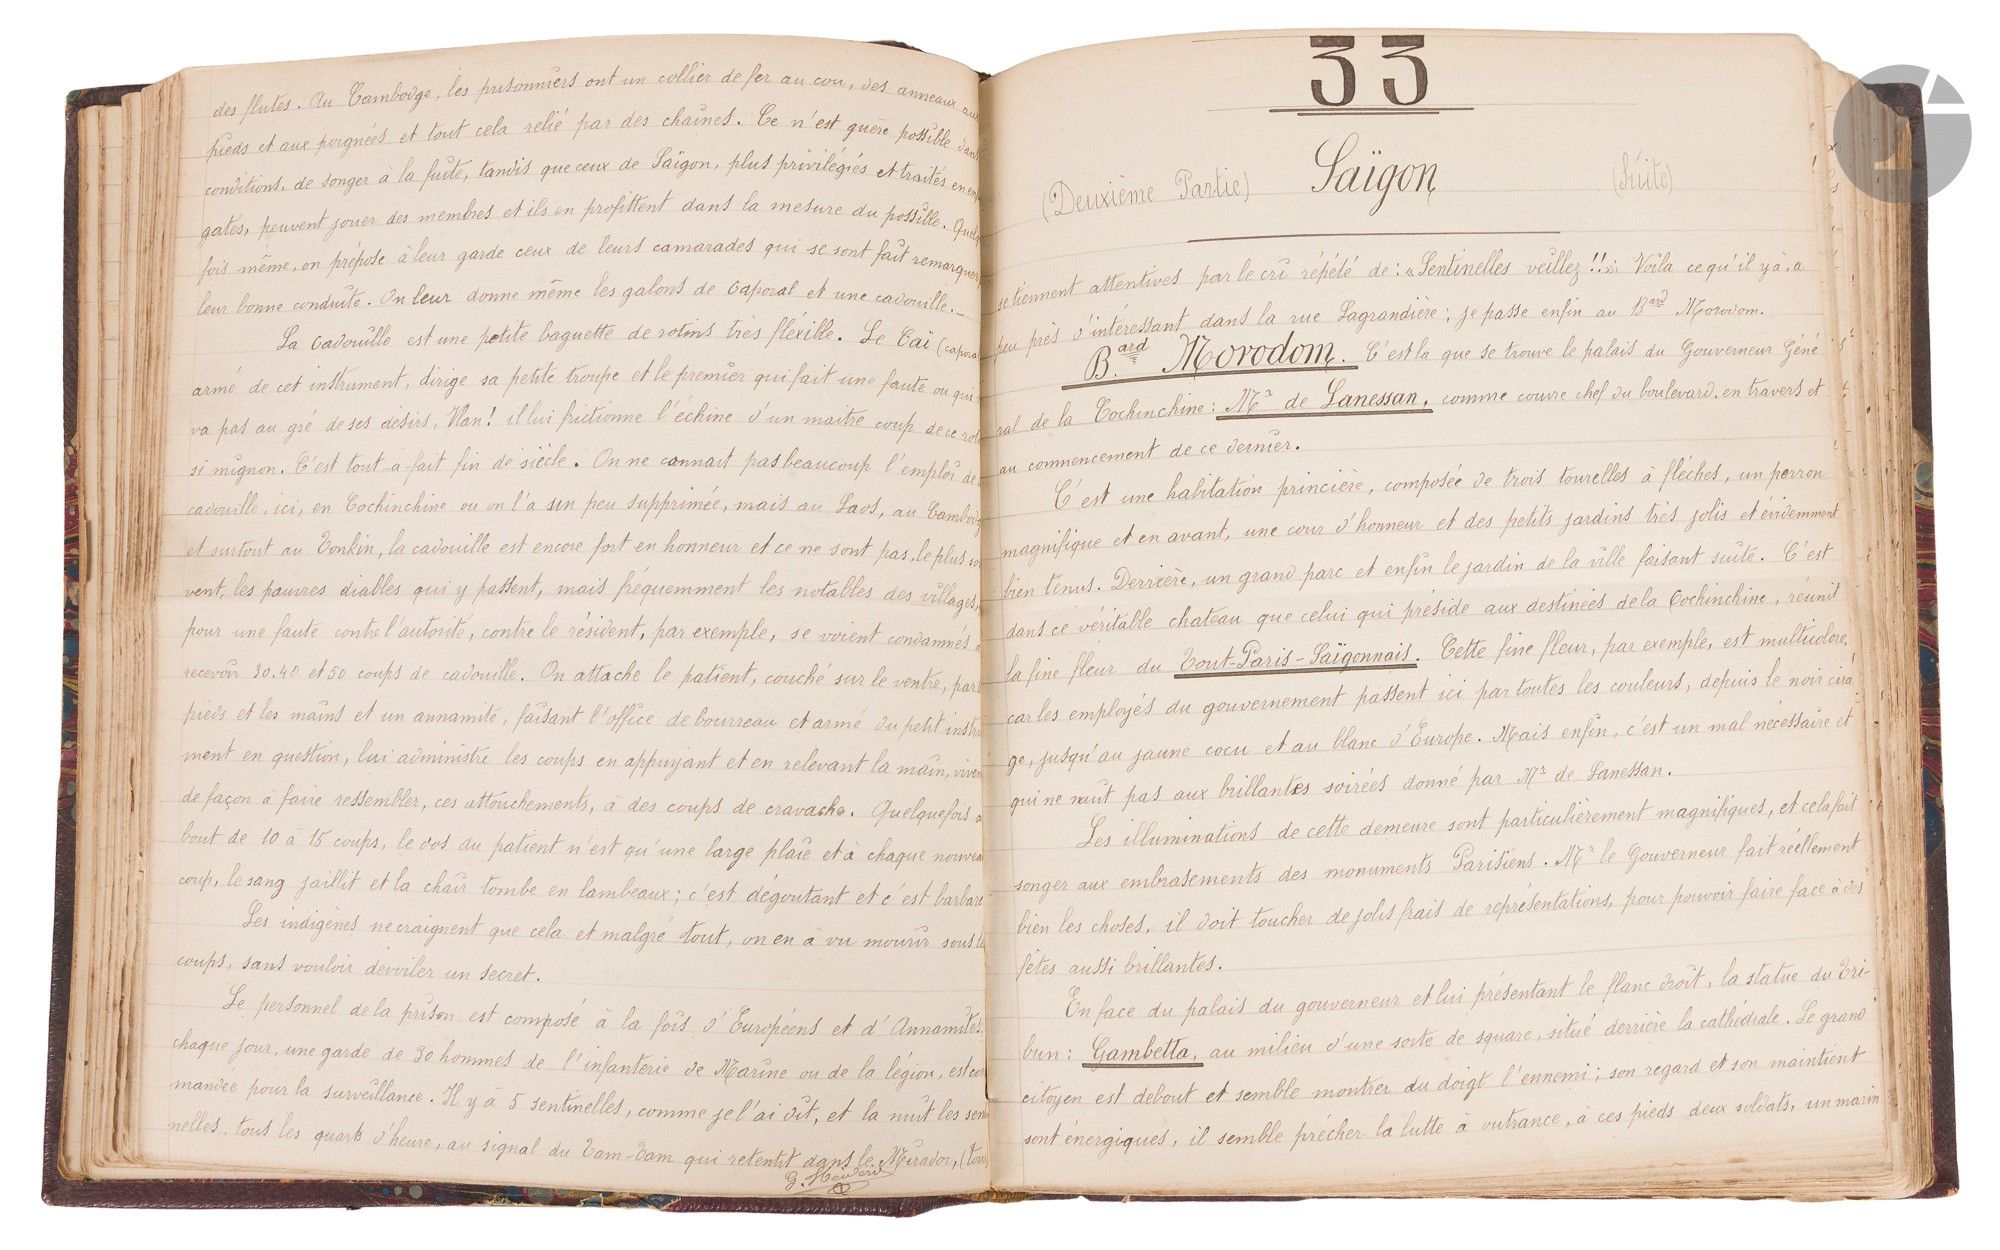 des flutes. Au Cambodge, les prisonniers ont un collier de fer au cou, des anneaux aux
pieds et aux poignées et tout cela relié par des chaines. Ce n'est guère possible dans
conditions, de songer à la fuite, tandis que ceux de Saïgon, plus privilégiés et traités en enf
gatés, peuvent jouer des membres et ils en profittent dans la mesure du possible. Quelq
fois même, on prépose à leur garde ceux de leurs camarades qui se sont fait remarquer
leur bonne conduite. On leur donne même les galons de Caporal et une cadouille.
La Cadouille est une petite baguette de rotins très fléxille. Le Caï (caporal
armé de cet instrument, dirige sa petite troupe et le premier qui fait une faute ou qui
va pas au gré de ses désirs, Vlan! il lui frictionne l'échine d'un maitre coup de ce rot
si mignon. C'est tout-à-fait fin de siècle. On ne connait pas beaucoup l'emploi de
cadouille, ici, en Cochinchine ou on l'a un peu supprimée, mais au Laos, au Cambodg
et surtout au Tonkin, la cadouille est encore fort en honneur et ce ne sont pas, le plus so
vent, les pauvres diables qui y passent, mais fréquemment les notables des villages,
pour une faute contre l'autorité, contre le résident, par exemple, se voient condamnés à
recevoir 30.40 et 50 coups de cadouille. On attache le patient, couché sur le ventre, par l
pieds et les mains et un annamite, faisant l'office de bourreau et armé du petit instru
ment en question, lui administre les coups en appuyant et en relevant la main, vivem
de façon à faire ressembler, ces attouchements, à des coups de cravache. Quelquefois a
bout de 10 à 15 coups, le dos du patient n'est qu'une large plaie et à chaque nouveau
coup, le sang jaillit et la chair tombe en lambeaux; c'est dégoutant et c'est barbare
Les indigènes ne craignent que cela et malgré tout, on en à vu mourir sous le
coups, sans vouloir dévoiler un secret.
Le personnel de la prison est composé à la fois d'Européens et d'Annamites.
chaque jour, une garde de 30 hommes de l'infanterie de Marine ou de la légion, est com
mandée pour la surveillance. Il y à 5 sentinelles, comme je l'ai dit, et la nuit les senti
nelles, tous les quarts d'heure, au signal du Tam-Tam qui retentit dans le Mirador, (tour)
33
(Deuxième Partie) Saïgon (Suite)
se tiennent attentives par le cri répété de: «Sentinelles veillez!!»; Voila ce qu'il y à, a
peu près d'intéressant dans la rue Lagrandière; je passe enfin au Bard Norodom.
Bard Norodom. C'est la que se trouve le palais du Gouverneur Géné
ral de la Cochinchine: Mr de Lanessan, comme couvre chef du boulevard, en travers et
au commencement de ce dernier.
C'est une habitation princière, composée de trois tourelles à flèches, un perron
magnifique et en avant, une cour d'honneur et des petits jardins très jolis et évidemment
bien tenus. Derrière, un grand parc et enfin le jardin de la ville faisant suite. C'est
dans ce véritable chateau que celui qui préside aux destinées de la Cochinchine, réunit
la fine fleur du Tout-Paris-Saïgonnais. Cette fine fleur, par exemple, est multicolore,
car les employés du gouvernement passent ici par toutes les couleurs, depuis le noir cira
ge, jusqu'au jaune cocu et au blanc d'Europe. Mais enfin, c'est un mal nécessaire et
qui ne nuit pas aux brillantes soirées donné par Mr de Lanessan.
Les illuminations de cette demeure sont particulièrement magnifiques, et cela fait
songer aux embrasements des monuments Parisiens. Mr le Gouverneur fait réellement
bien les choses, il doit toucher de jolis frais de représentations, pour pouvoir faire face à des
fêtes aussi brillantes.
En face du palais du gouverneur et lui présentant le flanc droit, la statue du Tri-
bun: Gambetta, au milieu d'une sorte de square, situé derrière la cathédrale. Le grand
citoyen est debout et semble montrer du doigt l'ennemi; son regard et son maintient
sont énergiques, il semble précher la lutte à outrance, à ces pieds deux soldats, un marin